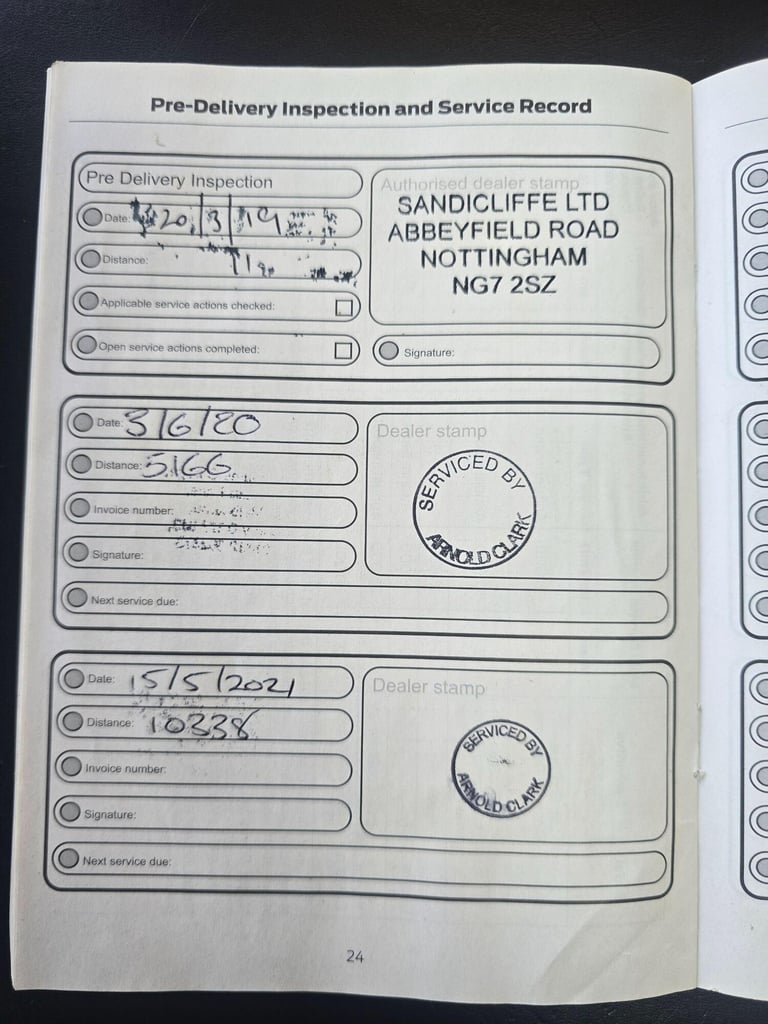 Pre-Delivery Inspection and Service Record
Pre Delivery Inspection
Date: 20/3/19
Distance:
Applicable service actions checked:
Open service actions completed:
Authorised dealer stamp
SANDICLIFFE LTD
ABBEYFIELD ROAD
NOTTINGHAM
NG7 2SZ
Signature:
Date: 3/6/20
Distance: 5166
Invoice number:
Signature:
Next service due:
Dealer stamp
SERVICED BY
ARNOLD CLARK
Date: 15/5/2021
Distance: 10338
Invoice number:
Signature:
Next service due:
Dealer stamp
SERVICED BY
ARNOLD CLARK
24